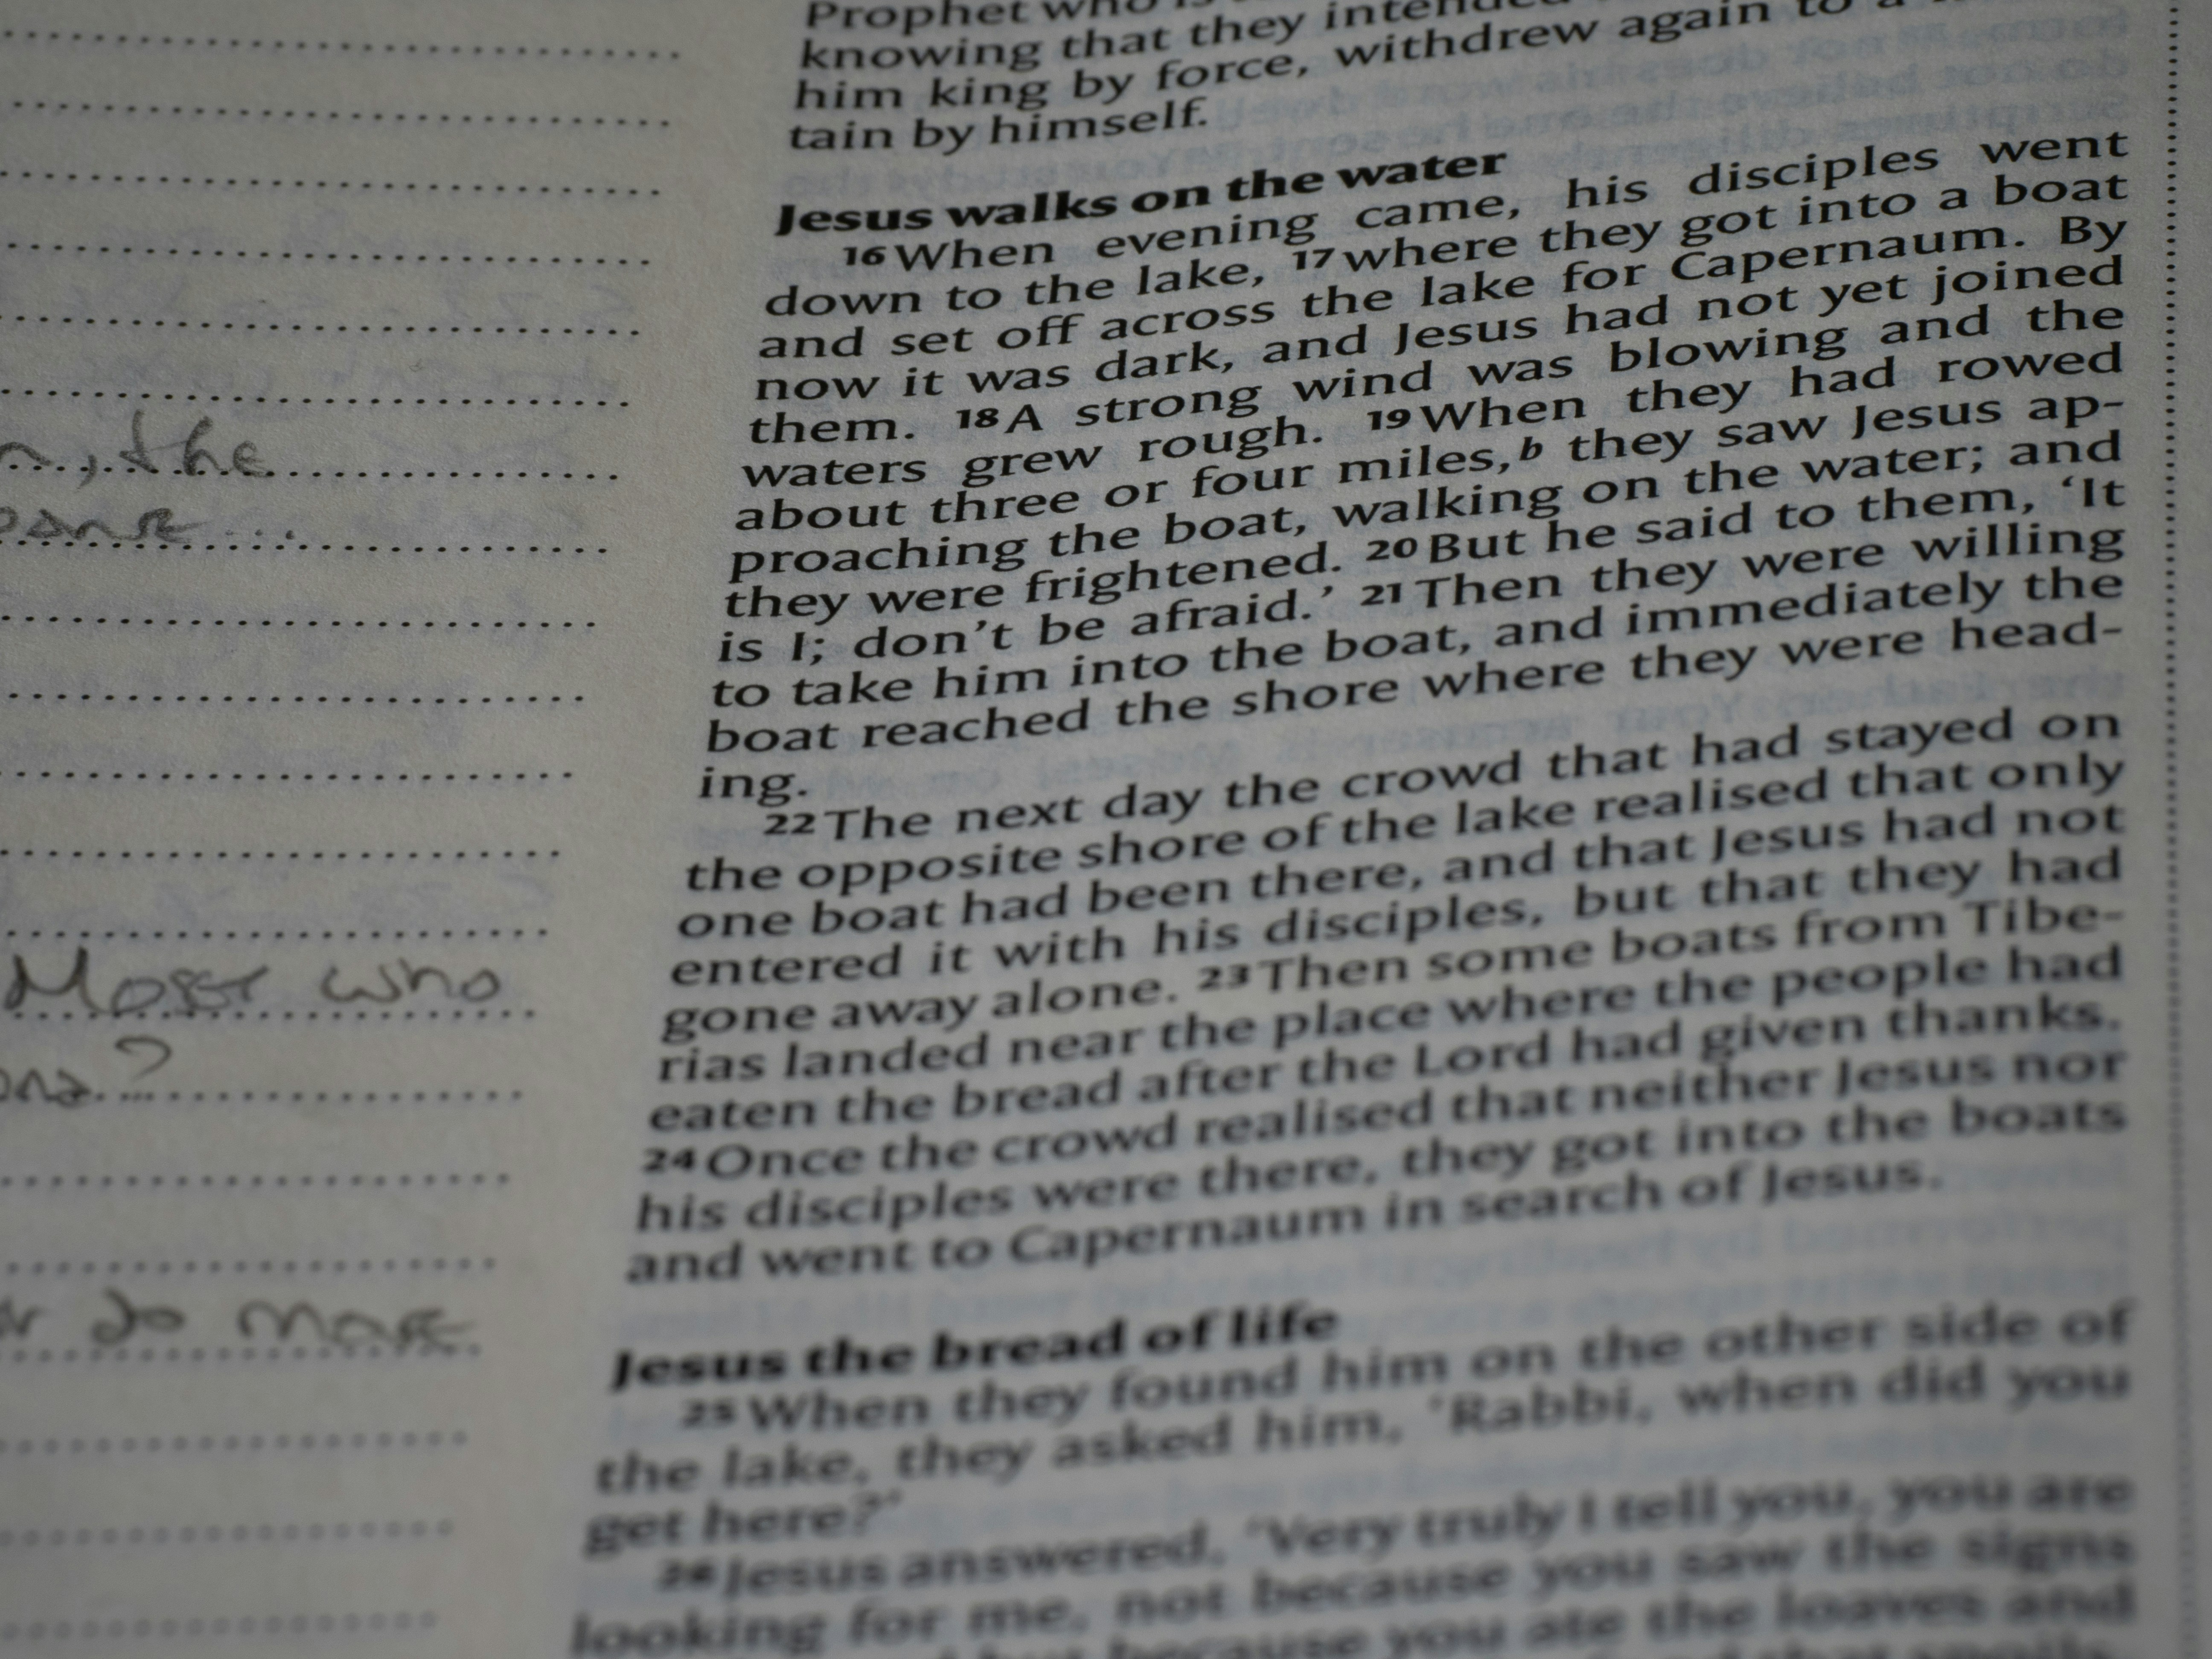 Prophet who
knowing that they intended
him king by force, withdrew again to a
tain by himself.
Jesus walks on the water
16 When evening came, his disciples went
down to the lake, 17 where they got into a boat
and set off across the lake for Capernaum. By
now it was dark, and Jesus had not yet joined
them. 18 A strong wind was blowing and the
waters grew rough. 19 When they had rowed
about three or four miles,b they saw Jesus ap-
proaching the boat, walking on the water; and
they were frightened. 20 But he said to them, ‘It
is I; don’t be afraid.’ 21 Then they were willing
to take him into the boat, and immediately the
boat reached the shore where they were head-
ing.
22 The next day the crowd that had stayed on
the opposite shore of the lake realised that only
one boat had been there, and that Jesus had not
entered it with his disciples, but that they had
gone away alone. 23 Then some boats from Tibe-
rias landed near the place where the people had
eaten the bread after the Lord had given thanks.
24 Once the crowd realised that neither Jesus nor
his disciples were there, they got into the boats
and went to Capernaum in search of Jesus.
Jesus the bread of life
25 When they found him on the other side of
the lake, they asked him, ‘Rabbi, when did you
get here?’
26 Jesus answered, ‘Very truly I tell you, you are
looking for me, not because you saw the signs
because you ate the loaves and
the
who
do more